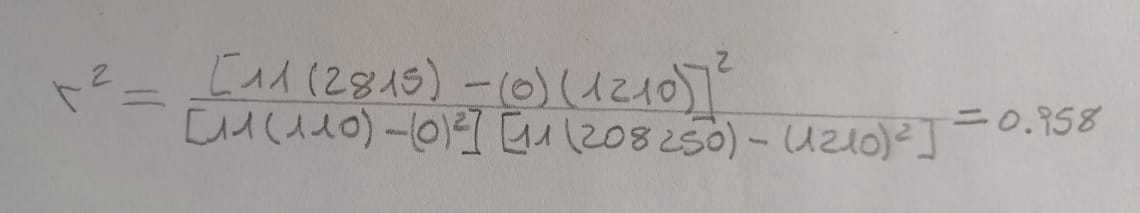 r² = [11(2815) - (0)(1210)]² / [11(110) - (0)²] [11(208250) - (1210)²] = 0.958